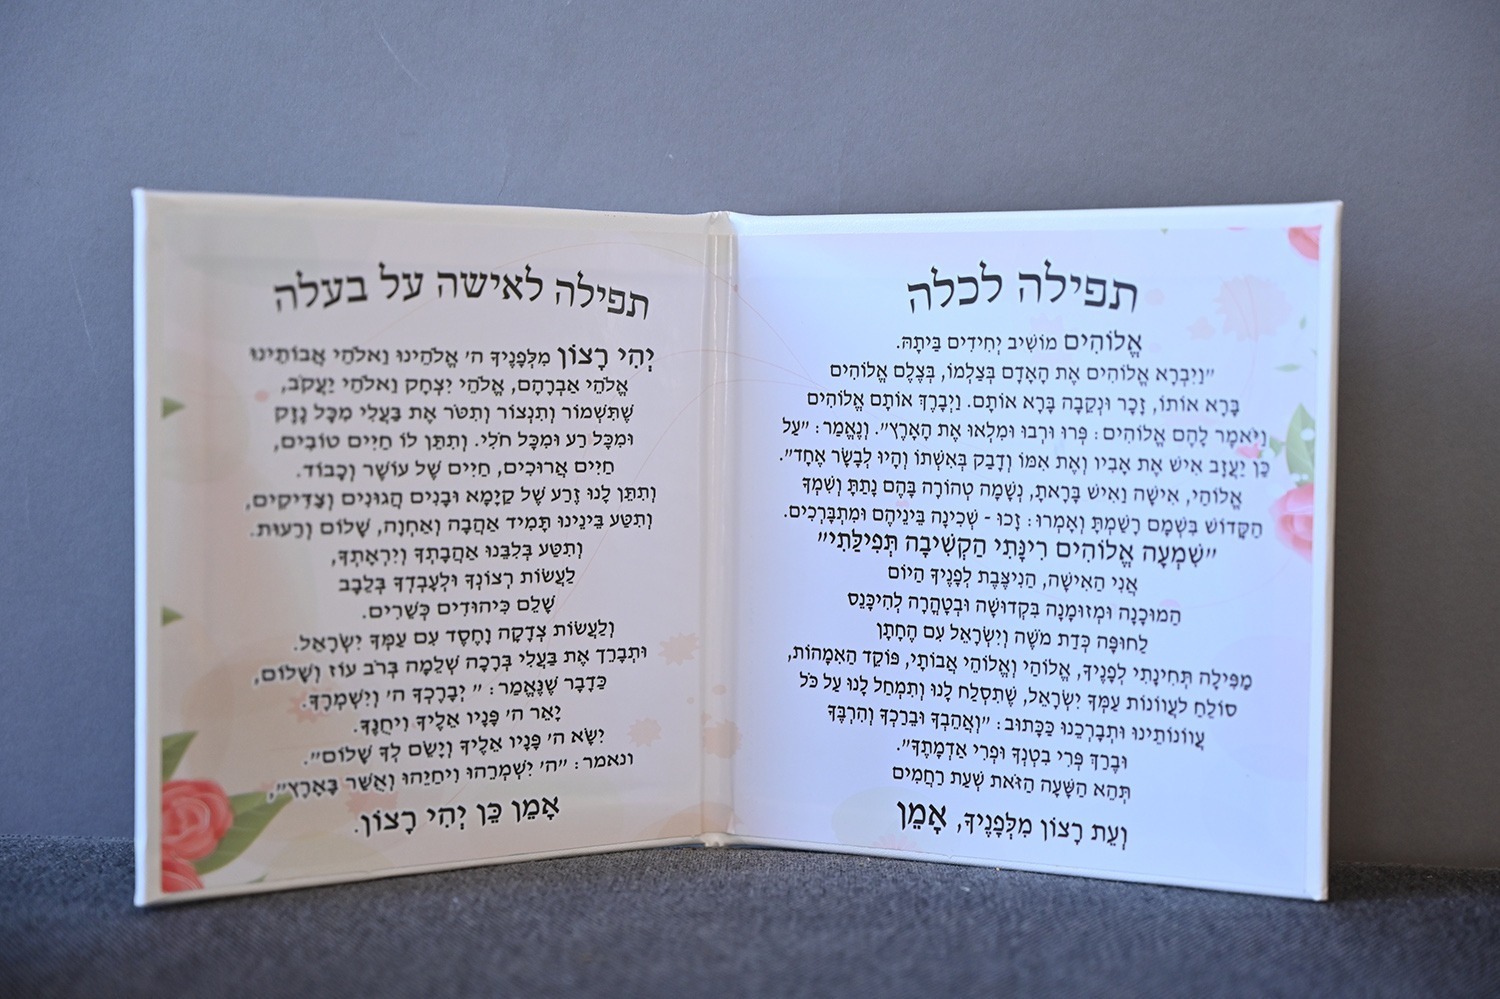 תפילה לכלה
אֱלוֹהִים מוֹשִׁיב יְחִידִים בַּיְתָהּ.
"וַיִּבְרָא אֱלוֹהִים אֶת הָאָדָם בְּצַלְמוֹ, בְּצֶלֶם אֱלוֹהִים
בָּרָא אוֹתוֹ, זָכָר וּנְקֵבָה בָּרָא אוֹתָם. וַיְבָרֶךְ אוֹתָם אֱלוֹהִים
וַיֹּאמֶר לָהֶם אֱלוֹהִים: פְּרוּ וּרְבוּ וּמִלְאוּ אֶת הָאָרֶץ". וְנֶאֱמַר: "עַל
כֵּן יַעֲזָב אִישׁ אֶת אָבִיו וְאֶת אִמּוֹ וְדָבַק בְּאִשְׁתּוֹ וְהָיוּ לְבָשָׂר אֶחָד".
אֱלוֹהַי, אִישָׁה וְאִישׁ בָּרָאתָ, נְשָׁמָה טְהוֹרָה בָּהֶם נָתַתָּ וְשִׁמְךָ
הַקָּדוֹשׁ בִּשְׁמָם רָשַׁמְתָּ וְאָמְרוּ: זָכוּ - שְׁכִינָה בֵּינֵיהֶם וּמִתְבָּרְכִים.
"שִׁמְעָה אֱלוֹהִים רִינָּתִי הַקְשִׁיבָה תְּפִילָּתִי"
אֲנִי הָאִישָׁה, הַנִּיצֶּבֶת לְפָנֶיךָ הַיּוֹם
הַמּוּכָנָה וּמְזוּמָנָה בִּקְדוּשָׁה וּבְטָהֳרָה לְהִיכָּנֵס
לַחוּפָּה כְּדַת מֹשֶׁה וְיִשְׂרָאֵל עִם הֶחָתָן
מַפִּילָה תְּחִינָתִי לְפָנֶיךָ, אֱלוֹהַי וְאֱלוֹהֵי אֲבוֹתַי, פּוֹקֵד הָאִמָּהוֹת,
סוֹלֵחַ לַעֲווֹנוֹת עַמְּךָ יִשְׂרָאֵל, שֶׁתִּסְלַח לָנוּ וְתִמְחַל לָנוּ עַל כֹּל
עֲווֹנוֹתֵינוּ וּתְבָרְכֵנוּ כַּכָּתוּב: "וַאֲהֵבְךָ וּבֵרַכְךָ וְהִרְבֶּךָ
וּבֵרַךְ פְּרִי בִטְנְךָ וּפְרִי אַדְמָתֶךָ".
תְּהֵא הַשָּׁעָה הַזֹּאת שְׁעַת רַחֲמִים
וְעֵת רָצוֹן מִלְּפָנֶיךָ, אָמֵן
תפילה לאישה על בעלה
יְהִי רָצוֹן מִלְּפָנֶיךָ ה' אֱלֹהֵינוּ וֵאלֹהֵי אֲבוֹתֵינוּ
אֱלֹהֵי אַבְרָהָם, אֱלֹהֵי יִצְחָק וֵאלֹהֵי יַעֲקֹב,
שֶׁתִּשְׁמוֹר וְתִנְצוֹר וְתִטֹּר אֶת בַּעֲלִי מִכָּל נֶזֶק
וּמִכָּל רַע וּמִכָּל חֹלִי. וְתִתֵּן לוֹ חַיִּים טוֹבִים,
חַיִּים אֲרוּכִים, חַיִּים שֶׁל עוֹשֶׁר וְכָבוֹד.
וְתִתֵּן לָנוּ זֶרַע שֶׁל קַיָּמָא וּבָנִים הֲגוּנִים וְצַדִּיקִים,
וְתִטַּע בֵּינֵינוּ תָּמִיד אַהֲבָה וְאַחְוָה, שָׁלוֹם וְרֵעוּת.
וְתִטַּע בְּלִבֵּנוּ אַהֲבָתְךָ וְיִרְאָתְךָ,
לַעֲשׂוֹת רְצוֹנְךָ וּלְעָבְדְךָ בְּלֵבָב
שָׁלֵם כִּיהוּדִים כְּשֵׁרִים.
וְלַעֲשׂוֹת צְדָקָה וָחֶסֶד עִם עַמְּךָ יִשְׂרָאֵל.
וּתְבָרֵךְ אֶת בַּעֲלִי בְּרָכָה שְׁלֵמָה בְּרֹב עוֹז וְשָׁלוֹם,
כַּדָּבָר שֶׁנֶּאֱמַר: " יְבָרֶכְךָ ה' וְיִשְׁמְרֶךָ.
יָאֵר ה' פָּנָיו אֵלֶיךָ וִיחֻנֶּךָּ.
יִשָּׂא ה' פָּנָיו אֵלֶיךָ וְיָשֵׂם לְךָ שָׁלוֹם".
ונאמר: "ה' יִשְׁמְרֵהוּ וִיחַיֵּהוּ וְאֻשַּׁר בָּאָרֶץ",
אָמֵן כֵּן יְהִי רָצוֹן.